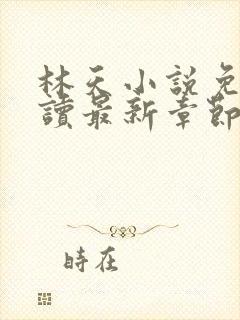 林天小說免
讀最新章節
時在